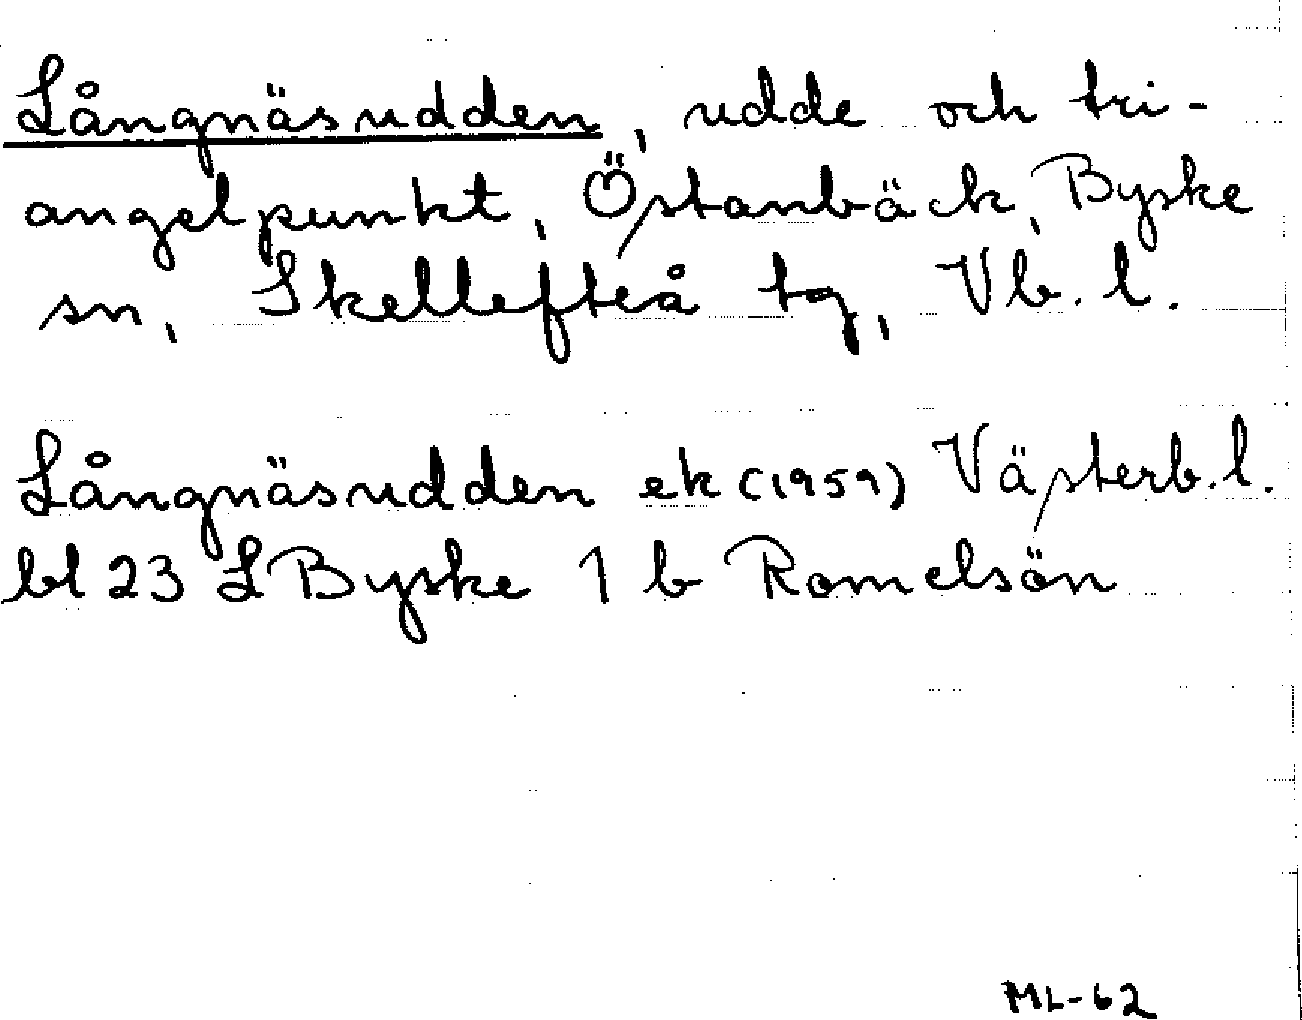 Långnäsudden, udde och tri-
angelpunkt, Östanbäck, Byske
sn, Skellefteå tg, Vb. l.
Långnäsudden ek (1959) Västerb. l.
bl 23 L Byske 1 b Romelsön
ML-62